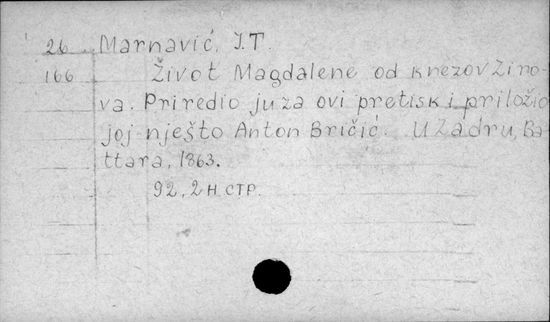 26 Marnavić, I.T.
166 Život Magdalene od knezov Žiro-
va. Priredio ju za ovi pretisk i priložio
joj nješto Anton Bričić. U Zadru, Ba-
ttara, 1863.
92, 2 н стр.